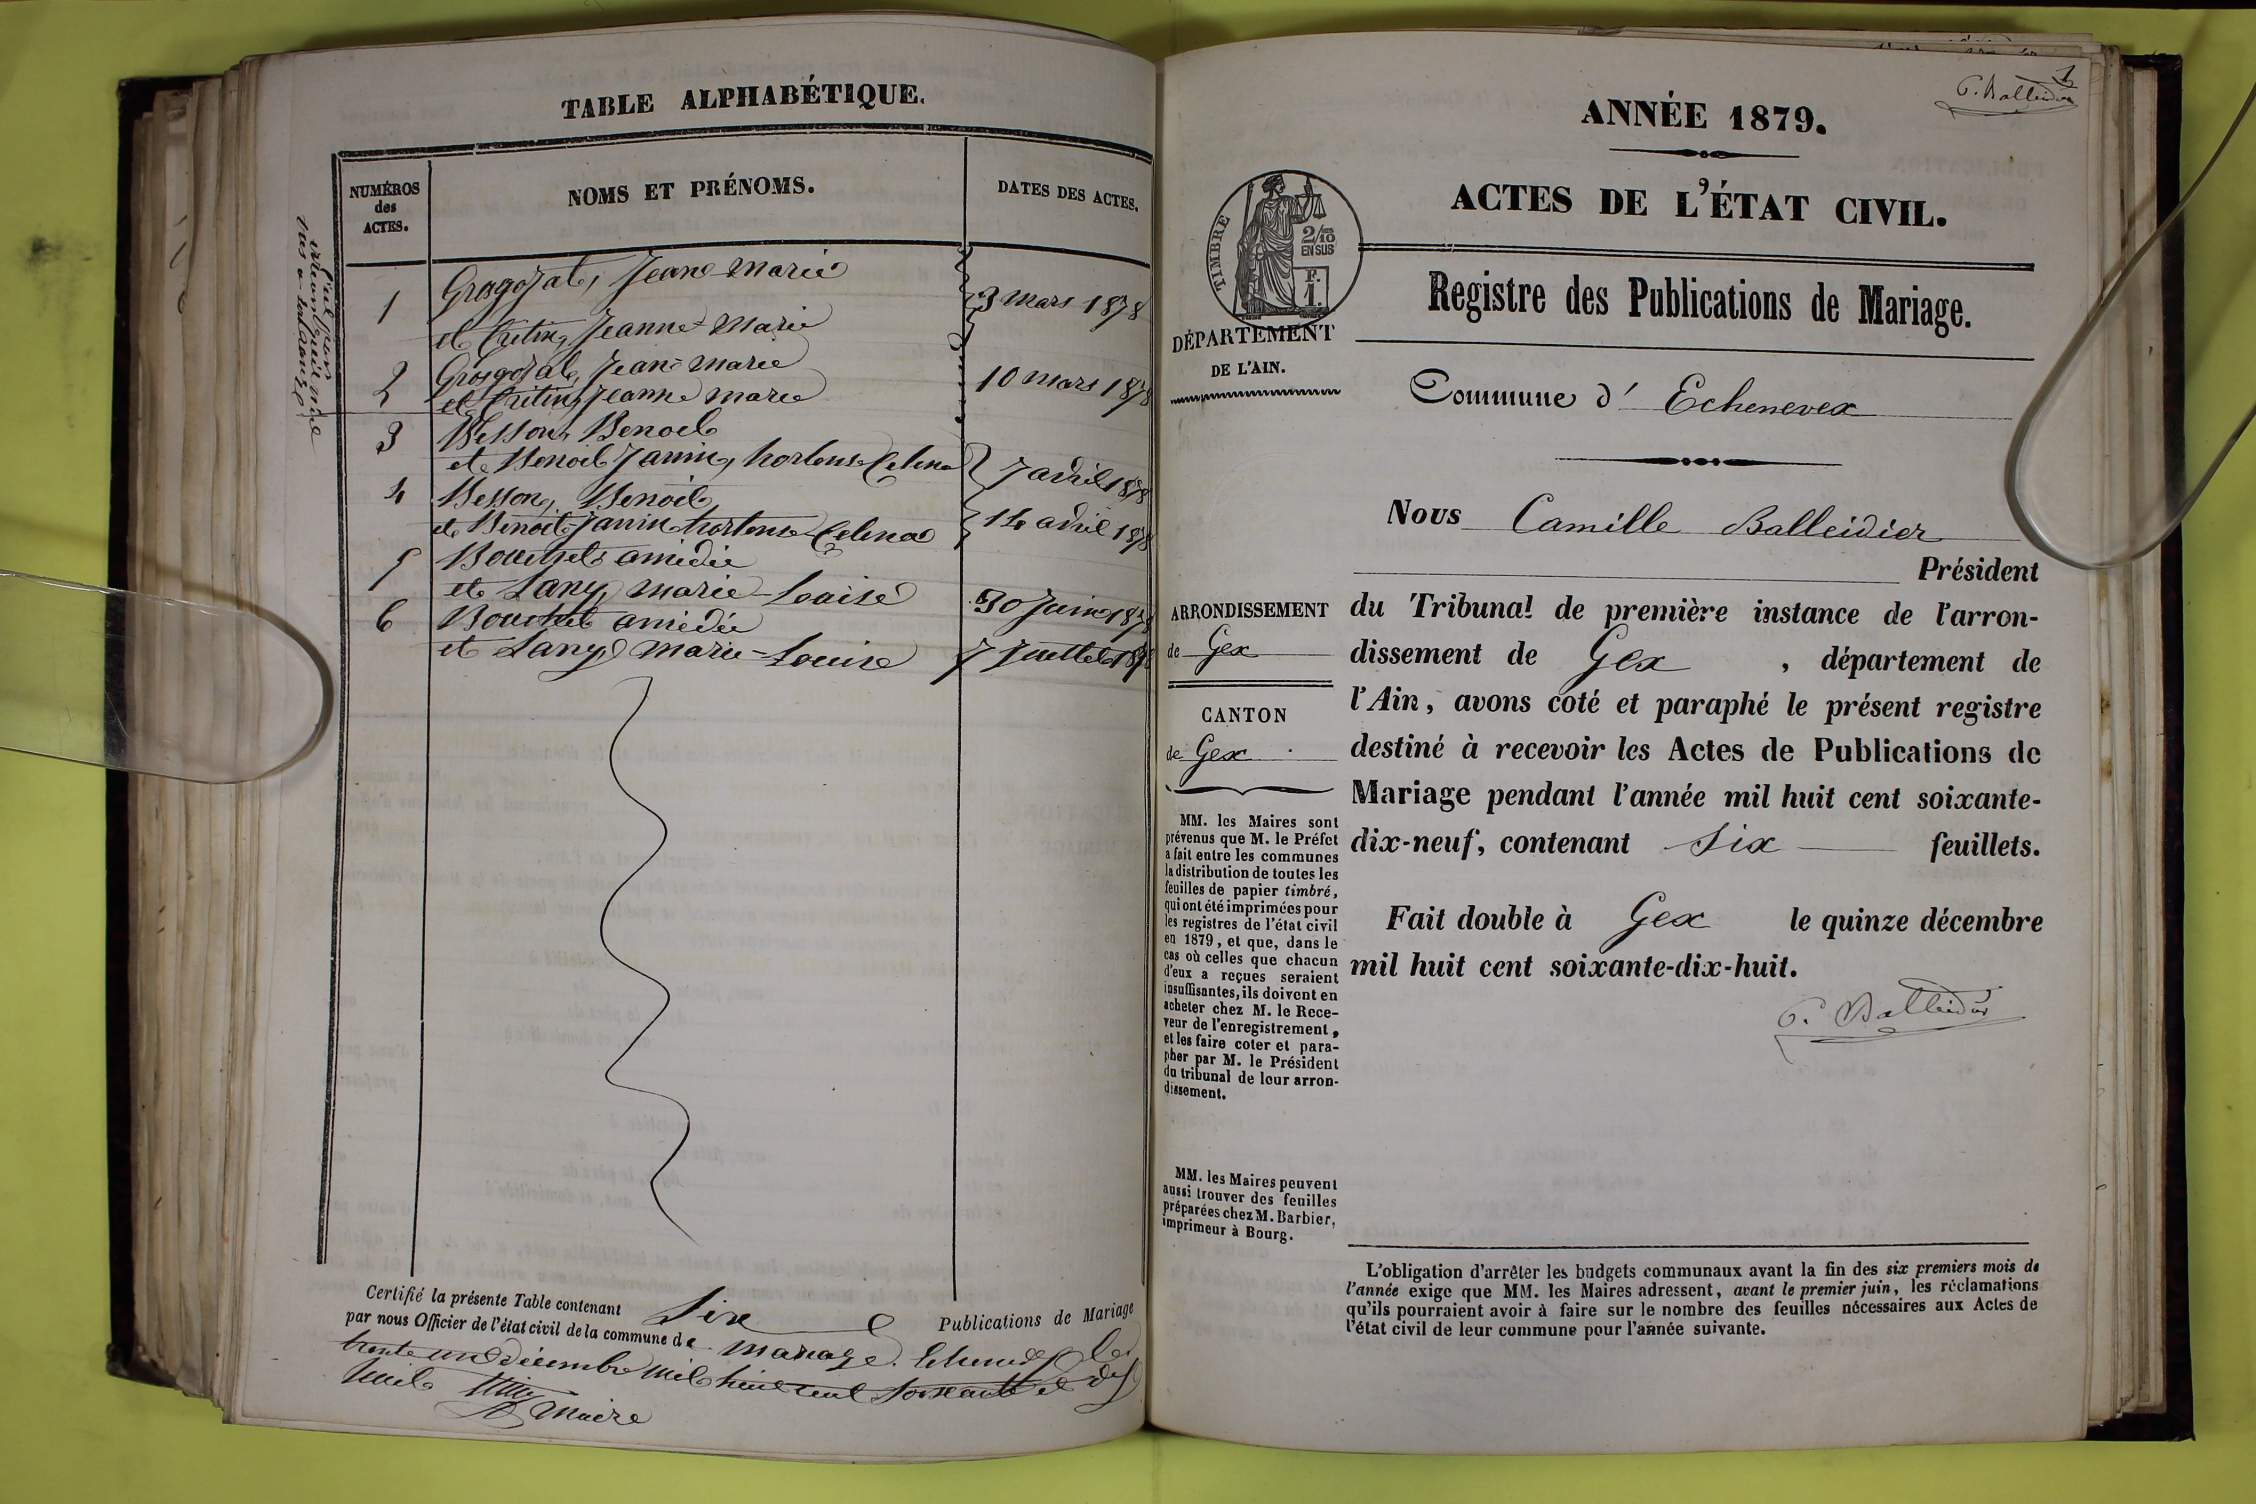 TABLE ALPHABÉTIQUE.
NUMÉROS
des
ACTES.
NOMS ET PRÉNOMS.
DATES DES ACTES.
1 Grosgojat, Jean Marie
et Critin, Jeanne-Marie
3 mars 1878
2 Grosgojat, Jean-Marie
et Critin, Jeanne Marie
10 mars 1878
3 Besson, Benoit
et Benoit Janin, hortense Celena
7 avril 1878
4 Besson, Benoit
et Benoit-Janin hortense Celena
14 avril 1878
5 Bouchet amédée
et Lany, marie-Louise
30 Juin 1878
6 Bouchet amédée
et Lany, marie-Louise
7 Juillet 1878
Certifié la présente Table contenant Six Publications de Mariage
par nous Officier de l'état civil de la commune de mariage. le
trente un décembre mil huit cent soixante et dix
huit
Maire
1
C. Balleidier
ANNÉE 1879.
ACTES DE L'ÉTAT CIVIL.
TIMBRE
2/10
EN SUS
F.
1.
Registre des Publications de Mariage.
DÉPARTEMENT
DE L'AIN.
Commune d' Echenevex
Nous Camille Balleidier
Président
du Tribunal de première instance de l'arron-
dissement de Gex , département de
l'Ain, avons coté et paraphé le présent registre
destiné à recevoir les Actes de Publications de
Mariage pendant l'année mil huit cent soixante-
dix-neuf, contenant six feuillets.
Fait double à Gex le quinze décembre
mil huit cent soixante-dix-huit.
C. Balleidier
ARRONDISSEMENT
de Gex
CANTON
de Gex.
MM. les Maires sont
prévenus que M. le Préfet
a fait entre les communes
la distribution de toutes les
feuilles de papier timbré,
qui ont été imprimées pour
les registres de l'état civil
en 1879, et que, dans le
cas où celles que chacun
d'eux a reçues seraient
insuffisantes, ils doivent en
acheter chez M. le Rece-
veur de l'enregistrement,
et les faire coter et para-
pher par M. le Président
du tribunal de leur arron-
dissement.
MM. les Maires peuvent
aussi trouver des feuilles
préparées chez M. Barbier,
imprimeur à Bourg.
L'obligation d'arrêter les budgets communaux avant la fin des six premiers mois de
l'année exige que MM. les Maires adressent, avant le premier juin, les réclamations
qu'ils pourraient avoir à faire sur le nombre des feuilles nécessaires aux Actes de
l'état civil de leur commune pour l'année suivante.